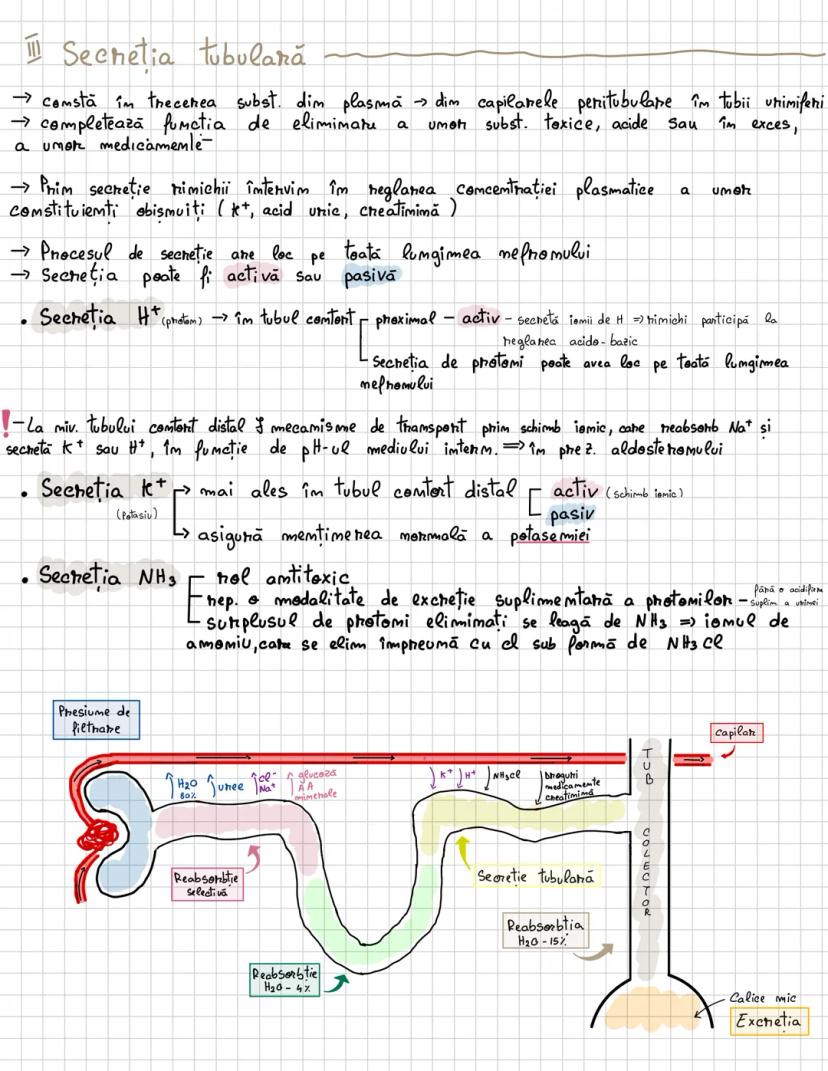 III Secreția tubulară
→ constă în trecerea subst. din plasmă → din capilarele peritubulare în tubii uriniferi
→ completează funcția de eliminare a unor subst. toxice, acide sau în exces,
a unor medicamente
→ Prin secreție rinichii intervin în reglarea concentrației plasmatice a unor
constituienți obișnuiți (K⁺, acid uric, creatinină)
→ Procesul de secreție are loc pe toată lungimea nefronului
→ Secreția poate fi activă sau pasivă
• Secreția H⁺ (proton) → în tubul contort proximal – activ – secretă ionii de H ⇒ rinichi participă la
reglarea acido-bazic
Secreția de protoni poate avea loc pe toată lungimea
nefronului
! – La niv. tubului contort distal ∃ mecanisme de transport prin schimb ionic, care reabsorb Na⁺ și
secretă K⁺ sau H⁺, în funcție de pH-ul mediului intern. ⇒ în prez. aldosteronului
• Secreția K⁺ → mai ales în tubul contort distal activ (schimb ionic)
(Potasiu) pasiv
→ asigură menținerea normală a potasemiei
• Secreția NH₃ rol antitoxic
rep. o modalitate de excreție suplimentară a protonilor – fără o acidifiere
suplim a urinei
surplusul de protoni eliminați se leagă de NH₃ ⇒ ionul de
amoniu, care se elim împreună cu cl sub formă de NH₃Cl
Presiune de
filtrare
capilar
↑ H₂O
80%
↑ uree
↑ Cl⁻
Na⁺
↑ glucoză
AA
minerale
↓ K⁺ ↓ H⁺ ↓ NH₃Cl
↓ Droguri
medicamente
creatinină
TUB COLECTOR
Reabsorbție
selectivă
Secreție tubulară
Reabsorbția
H₂O – 15%
Reabsorbție
H₂O – 4%
Calice mic
Excreția